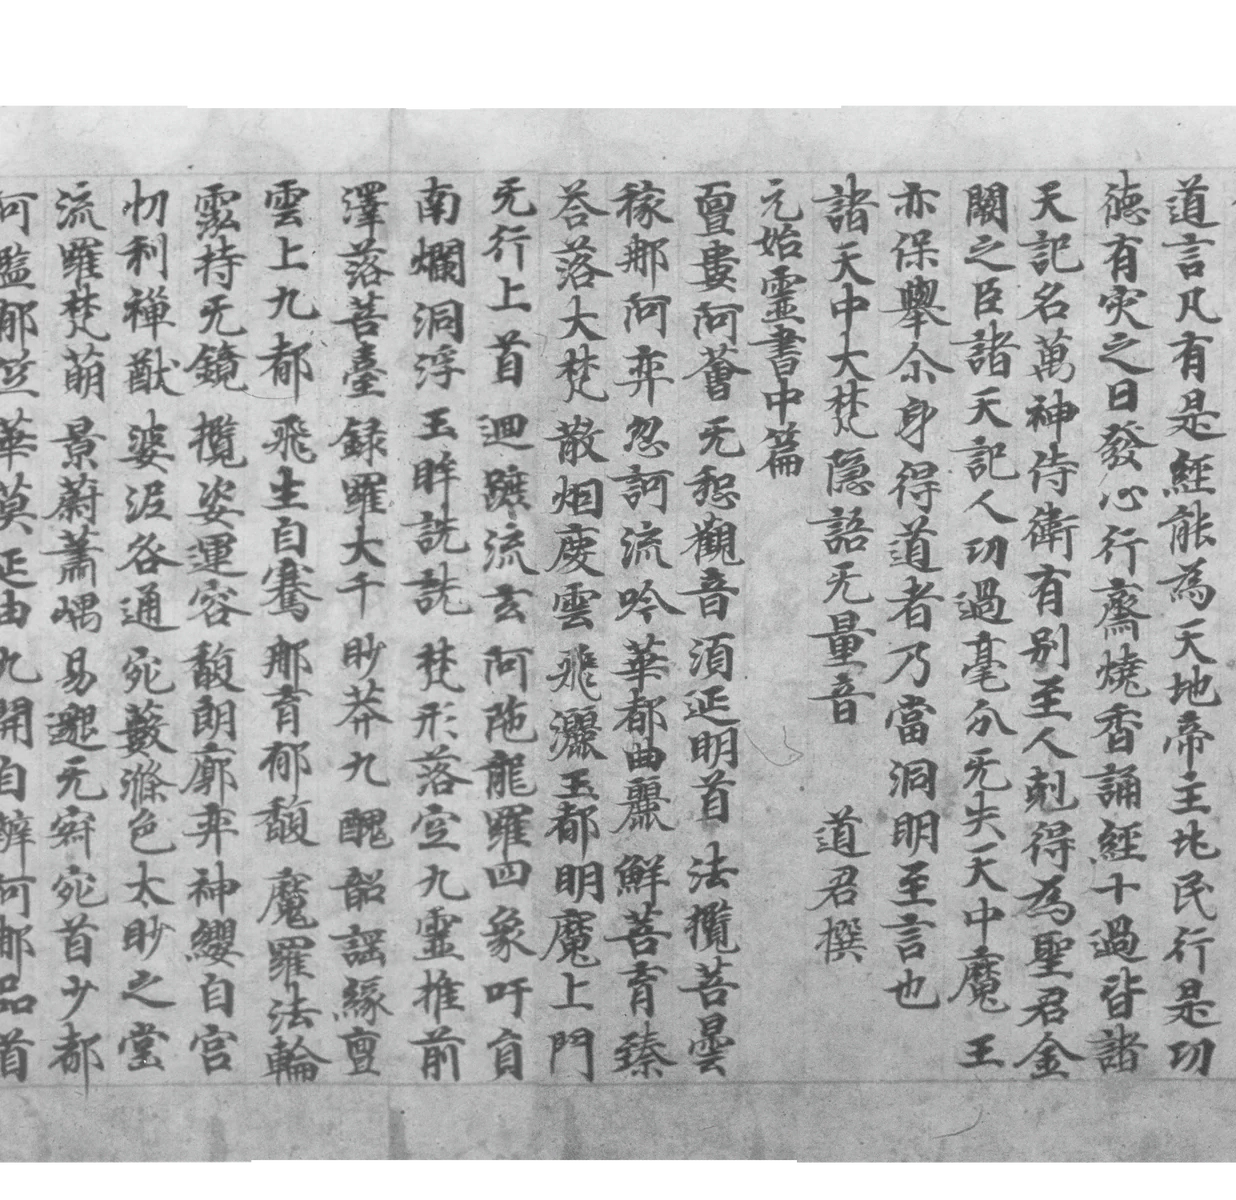 道言凡有是經能為天地帝主兆民行是功
德有灾之日發心行齋燒香誦經十過皆諸
天記名萬神侍衛有別至人剋得為聖君金
闕之臣諸天記人功過毫分无失天中魔王
亦保舉尒身得道者乃當洞明至言也
諸天中大梵隱語无量音 道君撰
元始靈書中篇
亶婁阿薈 无惒觀音 須延明首 法攬菩曇
稼那阿弈 忽訶流吟 華都曲麗 鮮菩育臻
荅落大梵 散烟慶雲 飛灑玉都 明魔上門
无行上首 迴蹠流玄 阿陁龍羅 四象吁員
南爛洞浮 玉眸詵詵 梵形落空 九靈推前
澤落菩臺 緑羅大千 眇莽九醜 韶謡緣亶
雲上九都 飛生自騫 那育郁馥 魔羅法輪
霐持无鏡 攬姿運容 馥朗廓弈 神纓自宫
忉利禪猷 婆泥咎通 宛藪滌色 太眇之堂
流羅梵萌 景蔚蕭嵎 易邈无寂 宛首少都
阿濫郁竺 華莫延由 九開自辯 阿那品首